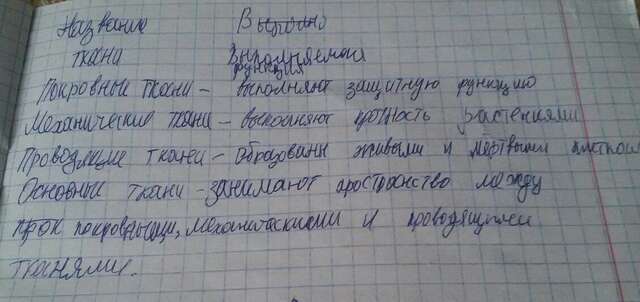 Название Выполно
ткани Выполняемая
функция
Покровные ткани - выполняют защитную функцию
Механические ткани - выполняют прочность растениями
Проводящие ткани - образованы живыми и мёртвыми
Основные ткани - занимают пространство между
покровными, механическими и проводящими
тканями.